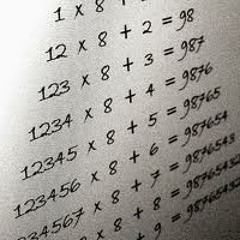 1 × 8 +
12 × 8 + 2 = 98
123 × 8 + 3 = 987
1234 × 8 + 4 = 9876
12345 × 8 + 5 = 98765
123456 × 8 + 6 = 987654
234567 × 8 + 7 = 9876543
× 8 + 8 = 98765432
+ 9 =